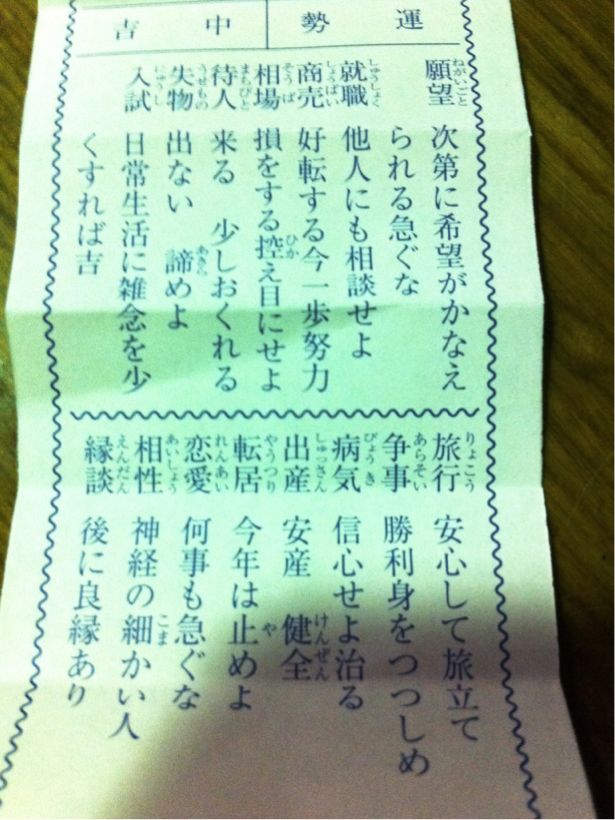 運勢
中吉
願望 次第に希望がかなえ
ねがいごと
られる急ぐな
就職 他人にも相談せよ
しゅうしょく
商売 好転する今一歩努力
しょうばい
相場 損をする控え目にせよ
そうば ひか
待人 来る 少しおくれる
まちびと
失物 出ない 諦めよ
うせもの あきら
入試 日常生活に雑念を少
にゅうし
くすれば吉
旅行 安心して旅立て
りょこう
争事 勝利身をつつしめ
あらそい
病気 信心せよ治る
びょうき
出産 安産 健全
しゅっさん けんぜん
転居 今年は止めよ
やうつり や
恋愛 何事も急ぐな
れんあい
相性 神経の細かい人
あいしょう こま
縁談 後に良縁あり
えんだん